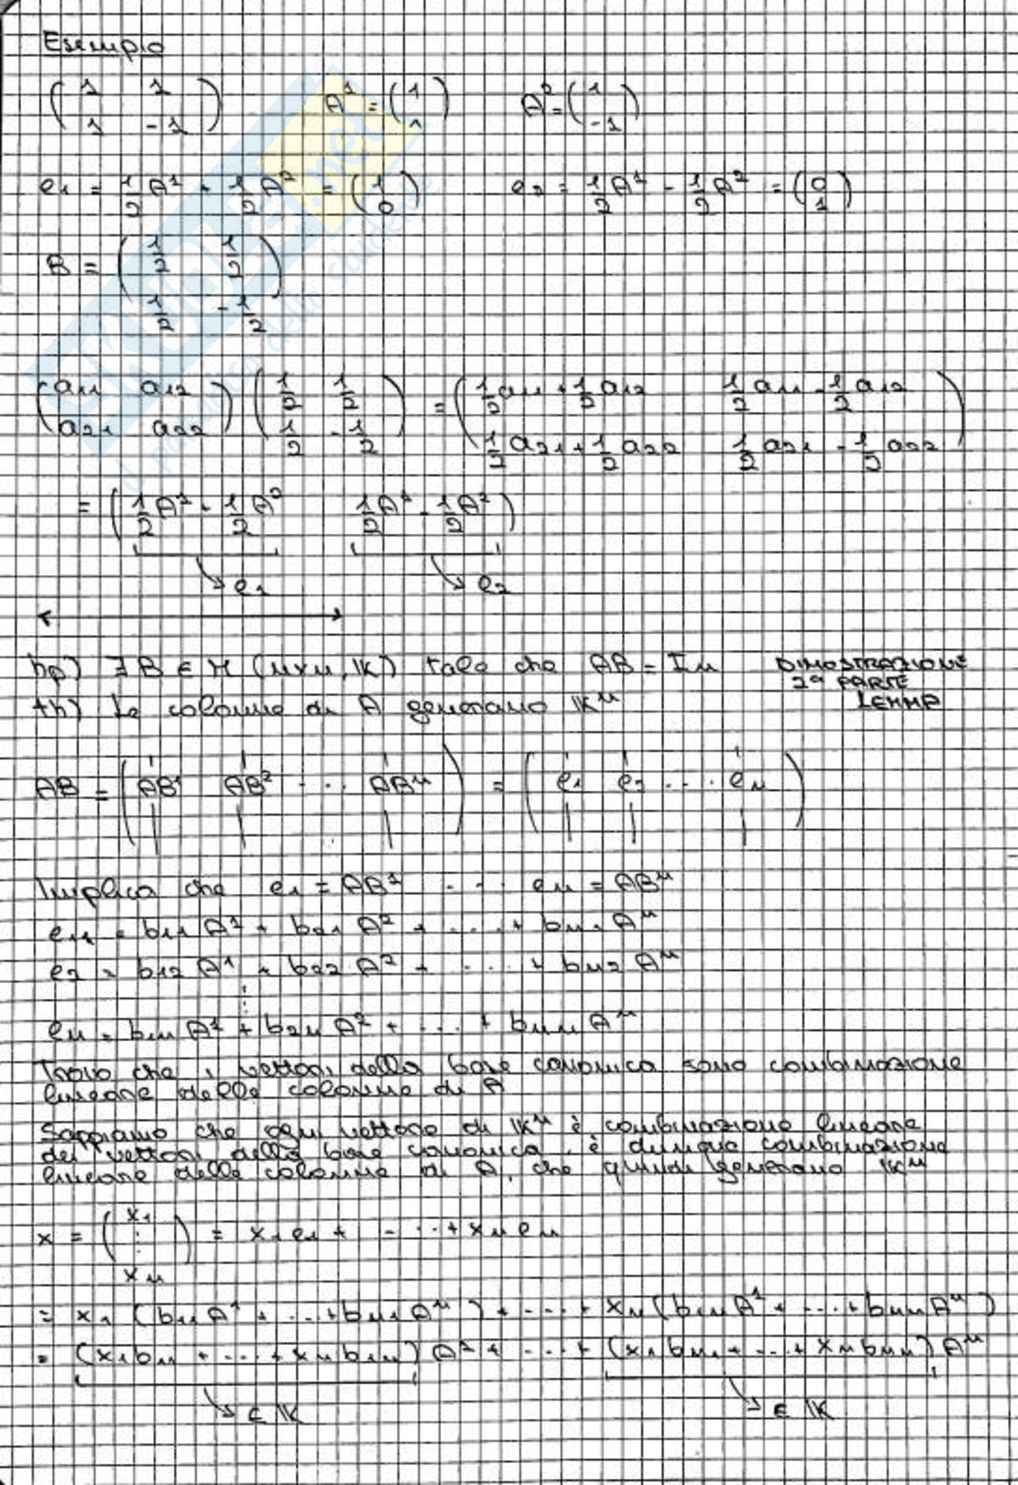 Esempio
( 1 1 ; 1 -1 ) A¹ = ( 1 ; 1 ) A² = ( 1 ; -1 )
e₁ = 1/2 A¹ + 1/2 A² = ( 1 ; 0 ) e₂ = 1/2 A¹ - 1/2 A² = ( 0 ; 1 )
B = ( 1/2 1/2 ; 1/2 -1/2 )
( a₁₁ a₁₂ ; a₂₁ a₂₂ ) ( 1/2 1/2 ; 1/2 -1/2 ) = ( 1/2 a₁₁ + 1/2 a₁₂ 1/2 a₁₁ - 1/2 a₁₂ ; 1/2 a₂₁ + 1/2 a₂₂ 1/2 a₂₁ - 1/2 a₂₂ )
= ( 1/2 A¹ + 1/2 A² 1/2 A¹ - 1/2 A² )
→ e₁ → e₂
hp) ∃ B ∈ M (n×n, K) tale che AB = In DIMOSTRAZIONE
2ª PARTE
th) Le colonne di A generano Kⁿ LEMMA
AB = ( AB¹ AB² ... ABⁿ ) = ( e₁ e₂ .... en )
Implica che e₁ = AB¹ .... en = ABⁿ
e₁ = b₁₁ A¹ + b₂₁ A² + .... + bn₁ Aⁿ
e₂ = b₁₂ A¹ + b₂₂ A² + .... + bn₂ Aⁿ
⋮
en = b₁n A¹ + b₂n A² + .... + bnn Aⁿ
Trovo che i vettori della base canonica sono combinazione
lineare delle colonne di A
Sappiamo che ogni vettore di Kⁿ è combinazione lineare
dei vettori della base canonica, è dunque combinazione
lineare delle colonne di A, che quindi generano Kⁿ
x = ( x₁ ; ⋮ ; xn ) = x₁e₁ + .... + xn en
= x₁ (b₁₁A¹ + ... + bn₁Aⁿ) + .... + xn (b₁nA¹ + .... + bnnAⁿ)
= (x₁b₁₁ + .... + xn b₁n) A¹ + .... + (x₁bn₁ + ... + xn bnn) Aⁿ
→ ∈ K → ∈ K